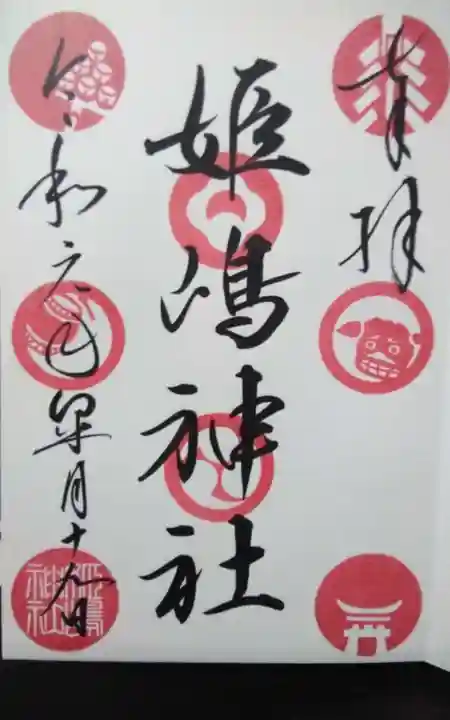 奉拝
姫嶋神社
令和元年皐月十九日
姫嶋
神社